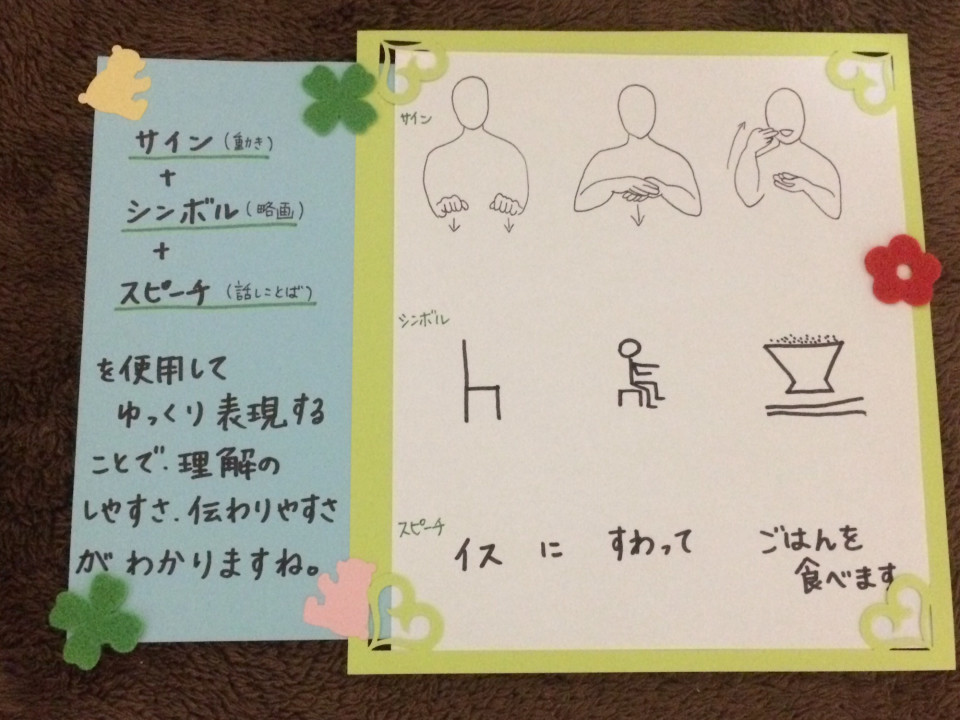 サイン(動き)
+
シンボル(略画)
+
スピーチ(話しことば)
を使用して
ゆっくり表現する
ことで、理解の
しやすさ、伝わりやすさ
がわかりますね。
サイン
シンボル
スピーチ
イス に すわって ごはんを
食べます